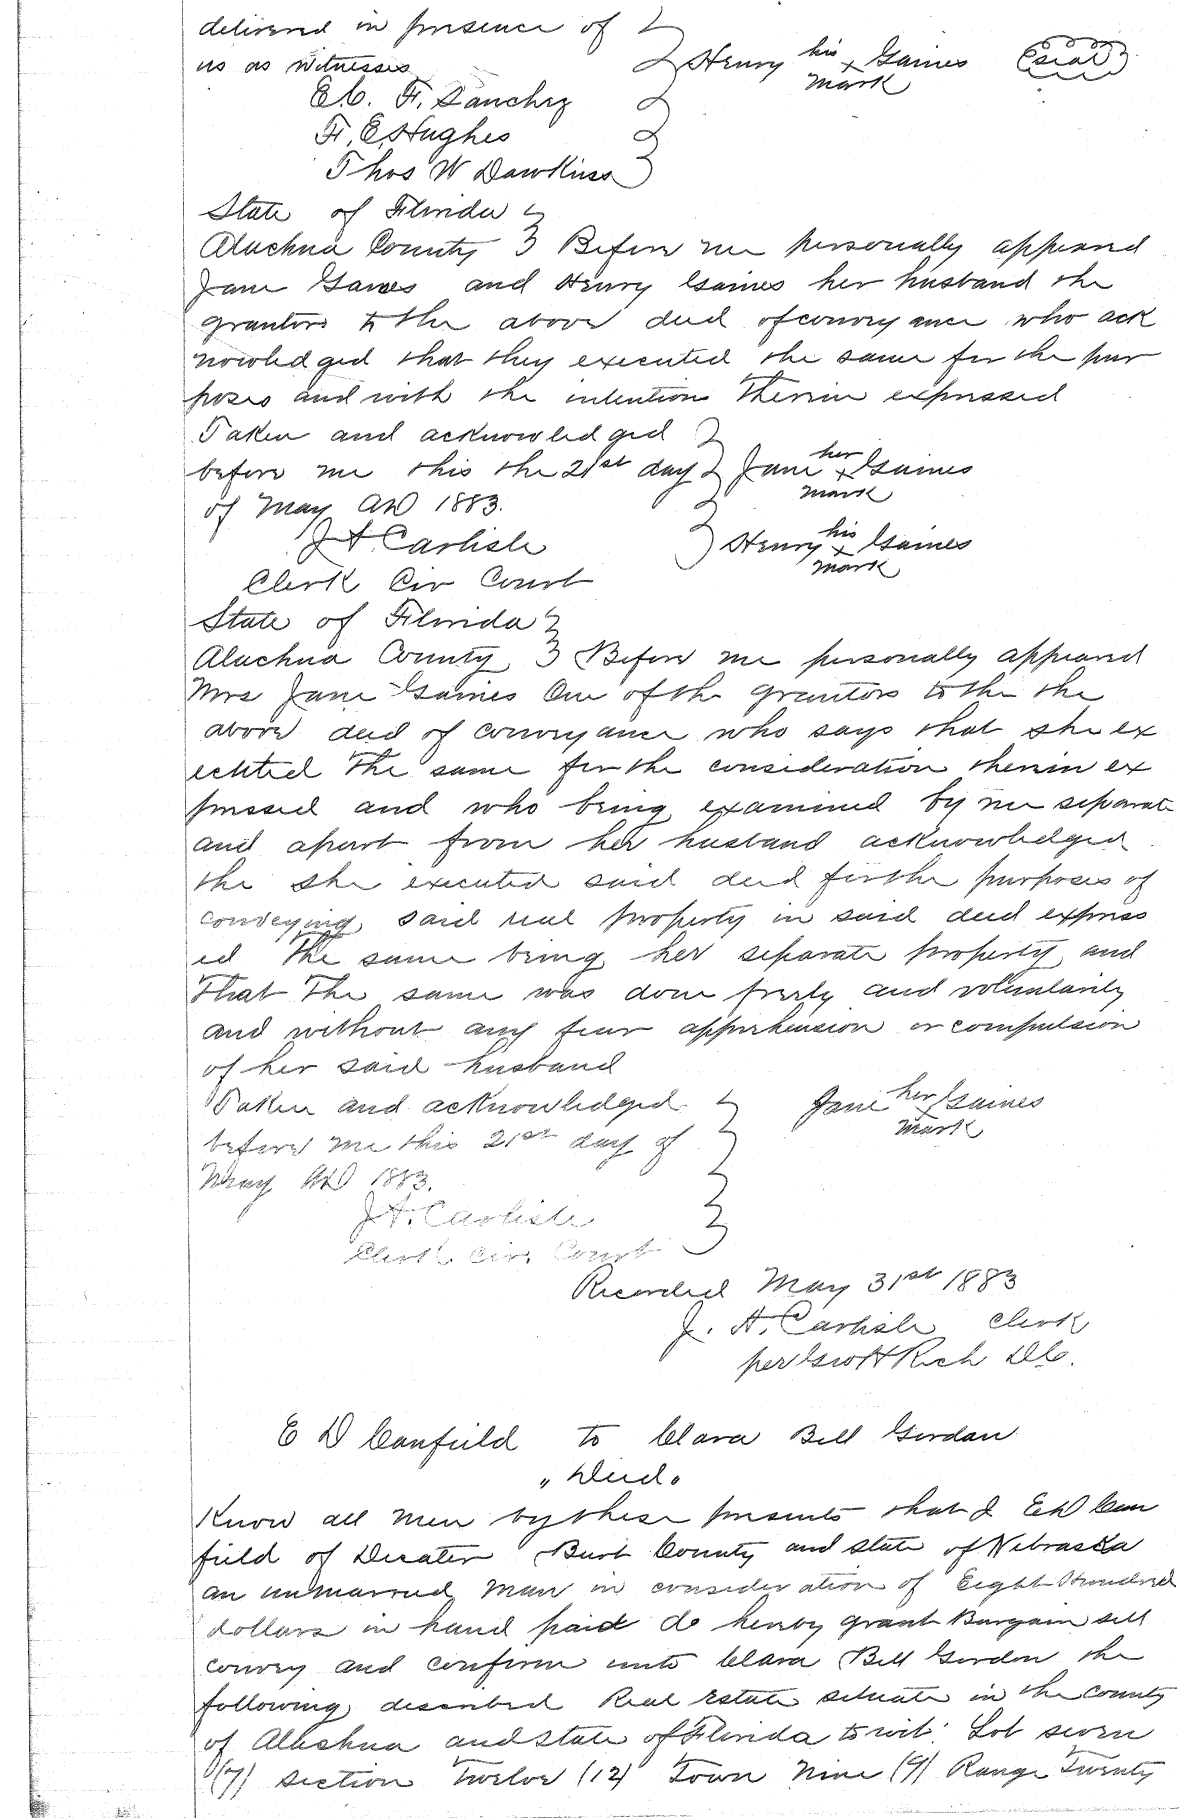 delivered in presence of
us as witnesses Henry his x mark Gaines (seal)
E. F. Sanchez
F. E. Hughes
Thos W Dawkins
State of Florida
Alachua County } Before me personally appeared
Jane Gaines and Henry Gaines her husband the
grantors to the above deed of conveyance who ack
nowledged that they executed the same for the pur
poses and with the intentions therein expressed
Taken and acknowledged
before me this the 21st day Jane her x mark Gaines
of May AD 1883.
J A. Carlisle Henry his x mark Gaines
Clerk Cir Court
State of Florida
Alachua County } Before me personally appeared
Mrs Jane Gaines One of the grantors to the the
above deed of conveyance who says that she ex
ecuted the same for the consideration therein ex
pressed and who being examined by me separate
and apart from her husband acknowledged
the she executed said deed for the purposes of
conveying said real property in said deed express
ed the same being her separate property and
that the same was done freely and voluntarily
and without any fear apprehension or compulsion
of her said husband
Taken and acknowledged Jane her x mark Gaines
before me this 21st day of
May AD 1883.
J A. Carlisle
Clerk Cir. Court
Recorded May 31st 1883
J. A. Carlisle Clerk
per Geo H Rich D.C.
E D Canfield to Clara Bell Gordan
"Deed"
Know all men by these presents that I E D Can
field of Decater Burt County and state of Nebraska
an unmarried man in consideration of Eight Hundred
dollars in hand paid do hereby grant Bargain sell
convey and confirm unto Clara Bell Gordon the
following described Real Estate situate in the county
of Allachua and state of Florida to wit: Lot seven
(7) section Twelve (12) Town Nine (9) Range Twenty